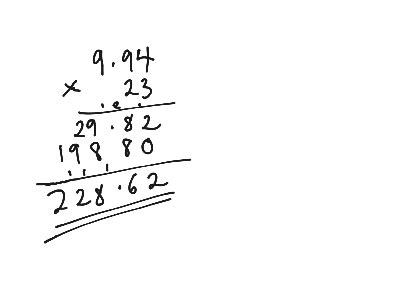 9.94
× 23
29.82
198.80
228.62